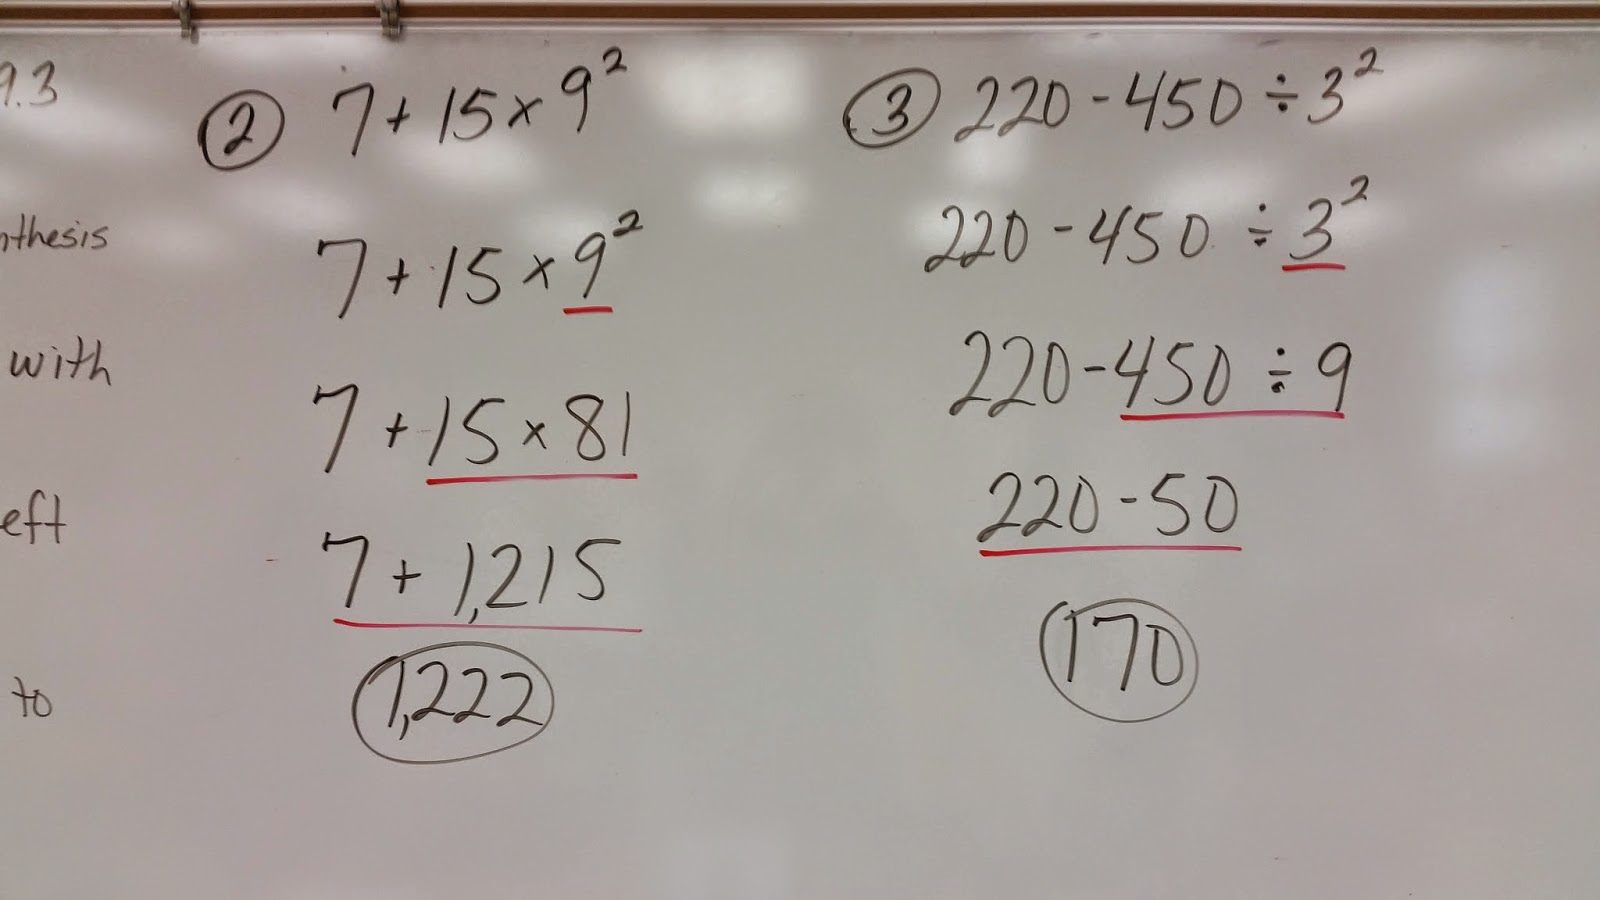 9.3
nthesis
with
eft
to
② 7 + 15 × 9²
7 + 15 × 9²
7 + 15 × 81
7 + 1,215
1,222
③ 220 - 450 ÷ 3²
220 - 450 ÷ 3²
220 - 450 ÷ 9
220 - 50
170